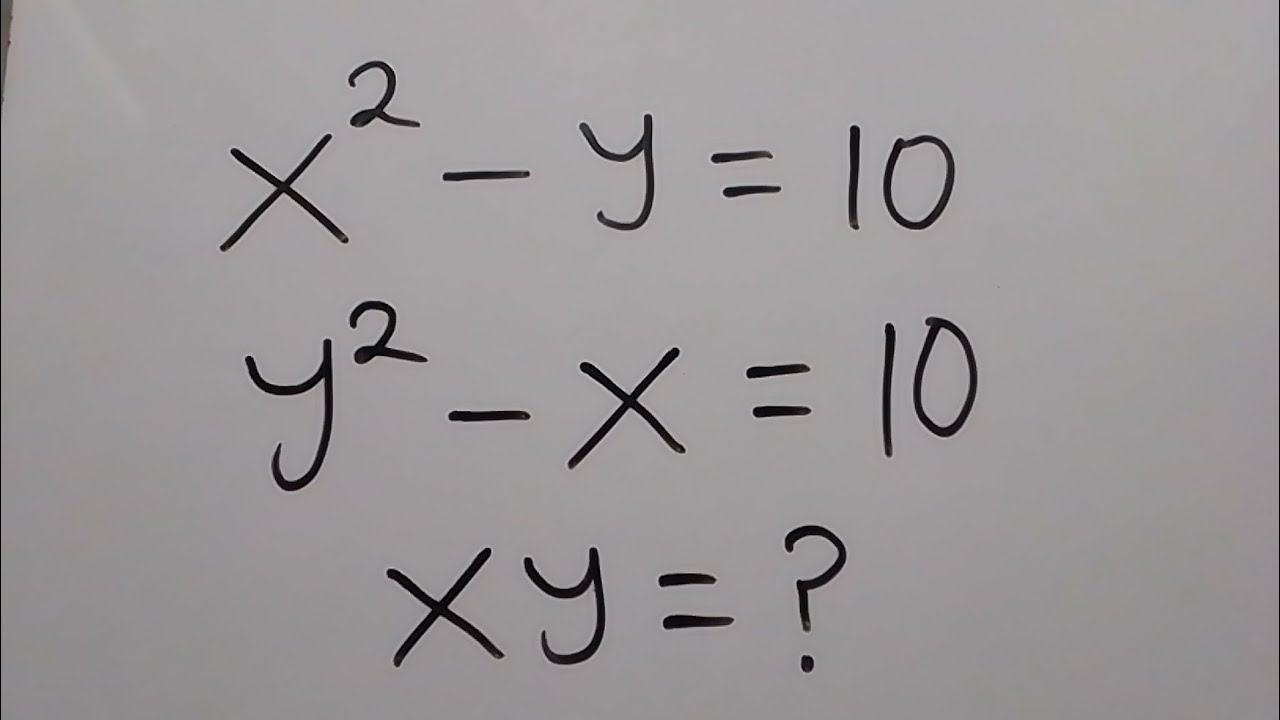 x² - y = 10
y² - x = 10
xy = ?